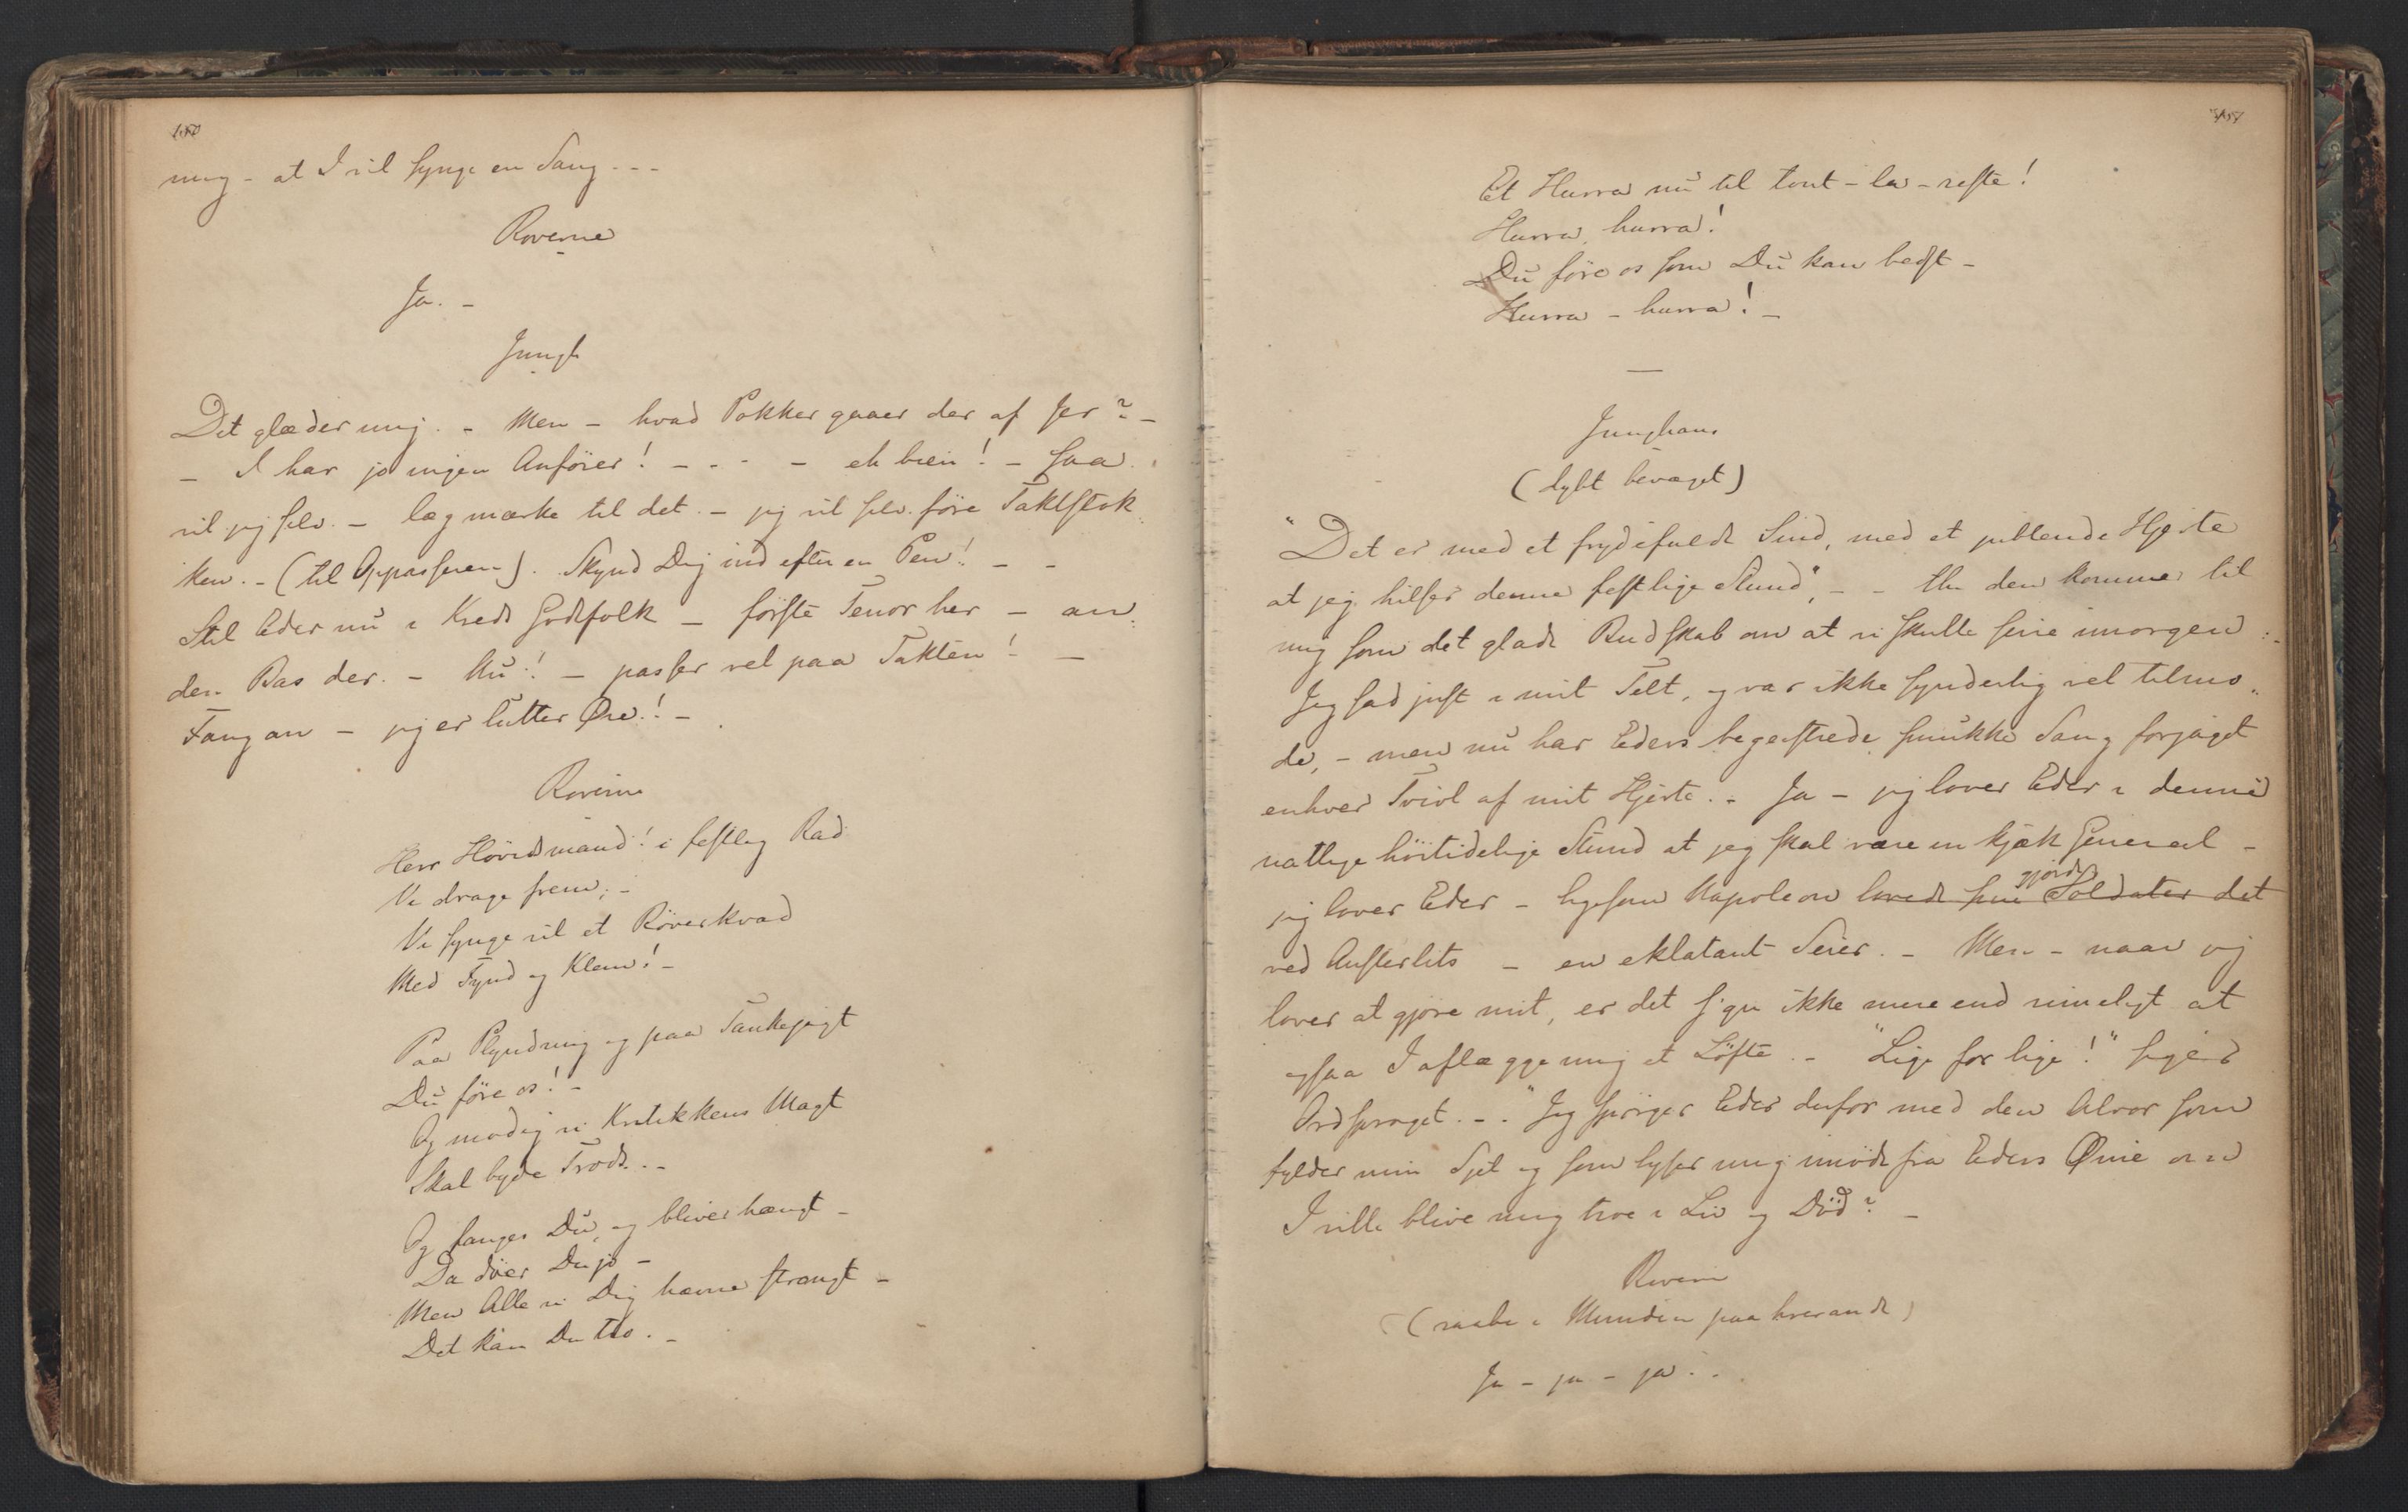 mig – at I vil synge en Sang – – –
Røverne
Ja. –
Jungh
Det glæder mig. – Men – hvad Pokker gaaer der af Jer? –
– I har jo ingen Anfører! – – – – eh bien! – saa
vil jeg selv – læg mærke til det – jeg vil selv føre Taktstok
ken. – (til Oppasseren). Skynd Dig ind efter en Pen! – –
Stil Eder nu i Kreds Godtfolk – første Tenor her – an:
den Bas der. – Nu! – passer vel paa Takten! –
Fang an – jeg er lutter Øre! –
Røverne
Herr Høvedsmand! i festlig Rad
Vi drage frem; –
Vi synge vil et Røverkvad
Med Fynd og Klem! –
Paa Plyndring og paa Tankejagt
Du føre os! –
Og modig vi Kritikkens Magt
Skal byde Trods. –
Og fanges Du, og bliver hængt –
Da døer Du jo –
Men Alle vi Dig hævne strængt –
Det kan Du tro. –
Et Hurra nu til tout – la – reste!
Hurra, hurra!
Du føre os som Du kan bedst –
Hurra – hurra! –
Junghans
(dybt bevæget)
"Det er med et frydefuldt Sind, med et jublende Hjerte
at jeg hilser denne festlige Stund", – – thi den kommer til
mig som det glade Budskab om at vi skulle seire imorgen. –
Jeg sad just i mit Telt, og var ikke synderlig vel tilmo„
de, – men nu har Eders begeistrede smukke Sang forjaget
enhver Tvivl af mit Hjerte. – Ja – jeg lover Eder i denne
natlige høitidelige Stund at jeg skal være en kjæk General –
gjorde
jeg lover Eder – ligesom Napoleon lovede sine Soldater det
ved Austerlits – en eklatant Seier. – Men – naar jeg
lover at gjøre mit, er det s'gu ikke mere end rimeligt at
ogsaa I aflægge mig et Løfte. – "Lige for lige!" siger
Ordsproget. – "Jeg spørger Eder derfor med den Alvor som
fylder min Sjel og som lyser mig imøde fra Eders Øine om
I ville blive mig troe i Liv og Død? –
Røverne
(raabe i Munden paa hverandre)
Ja – ja – ja. .